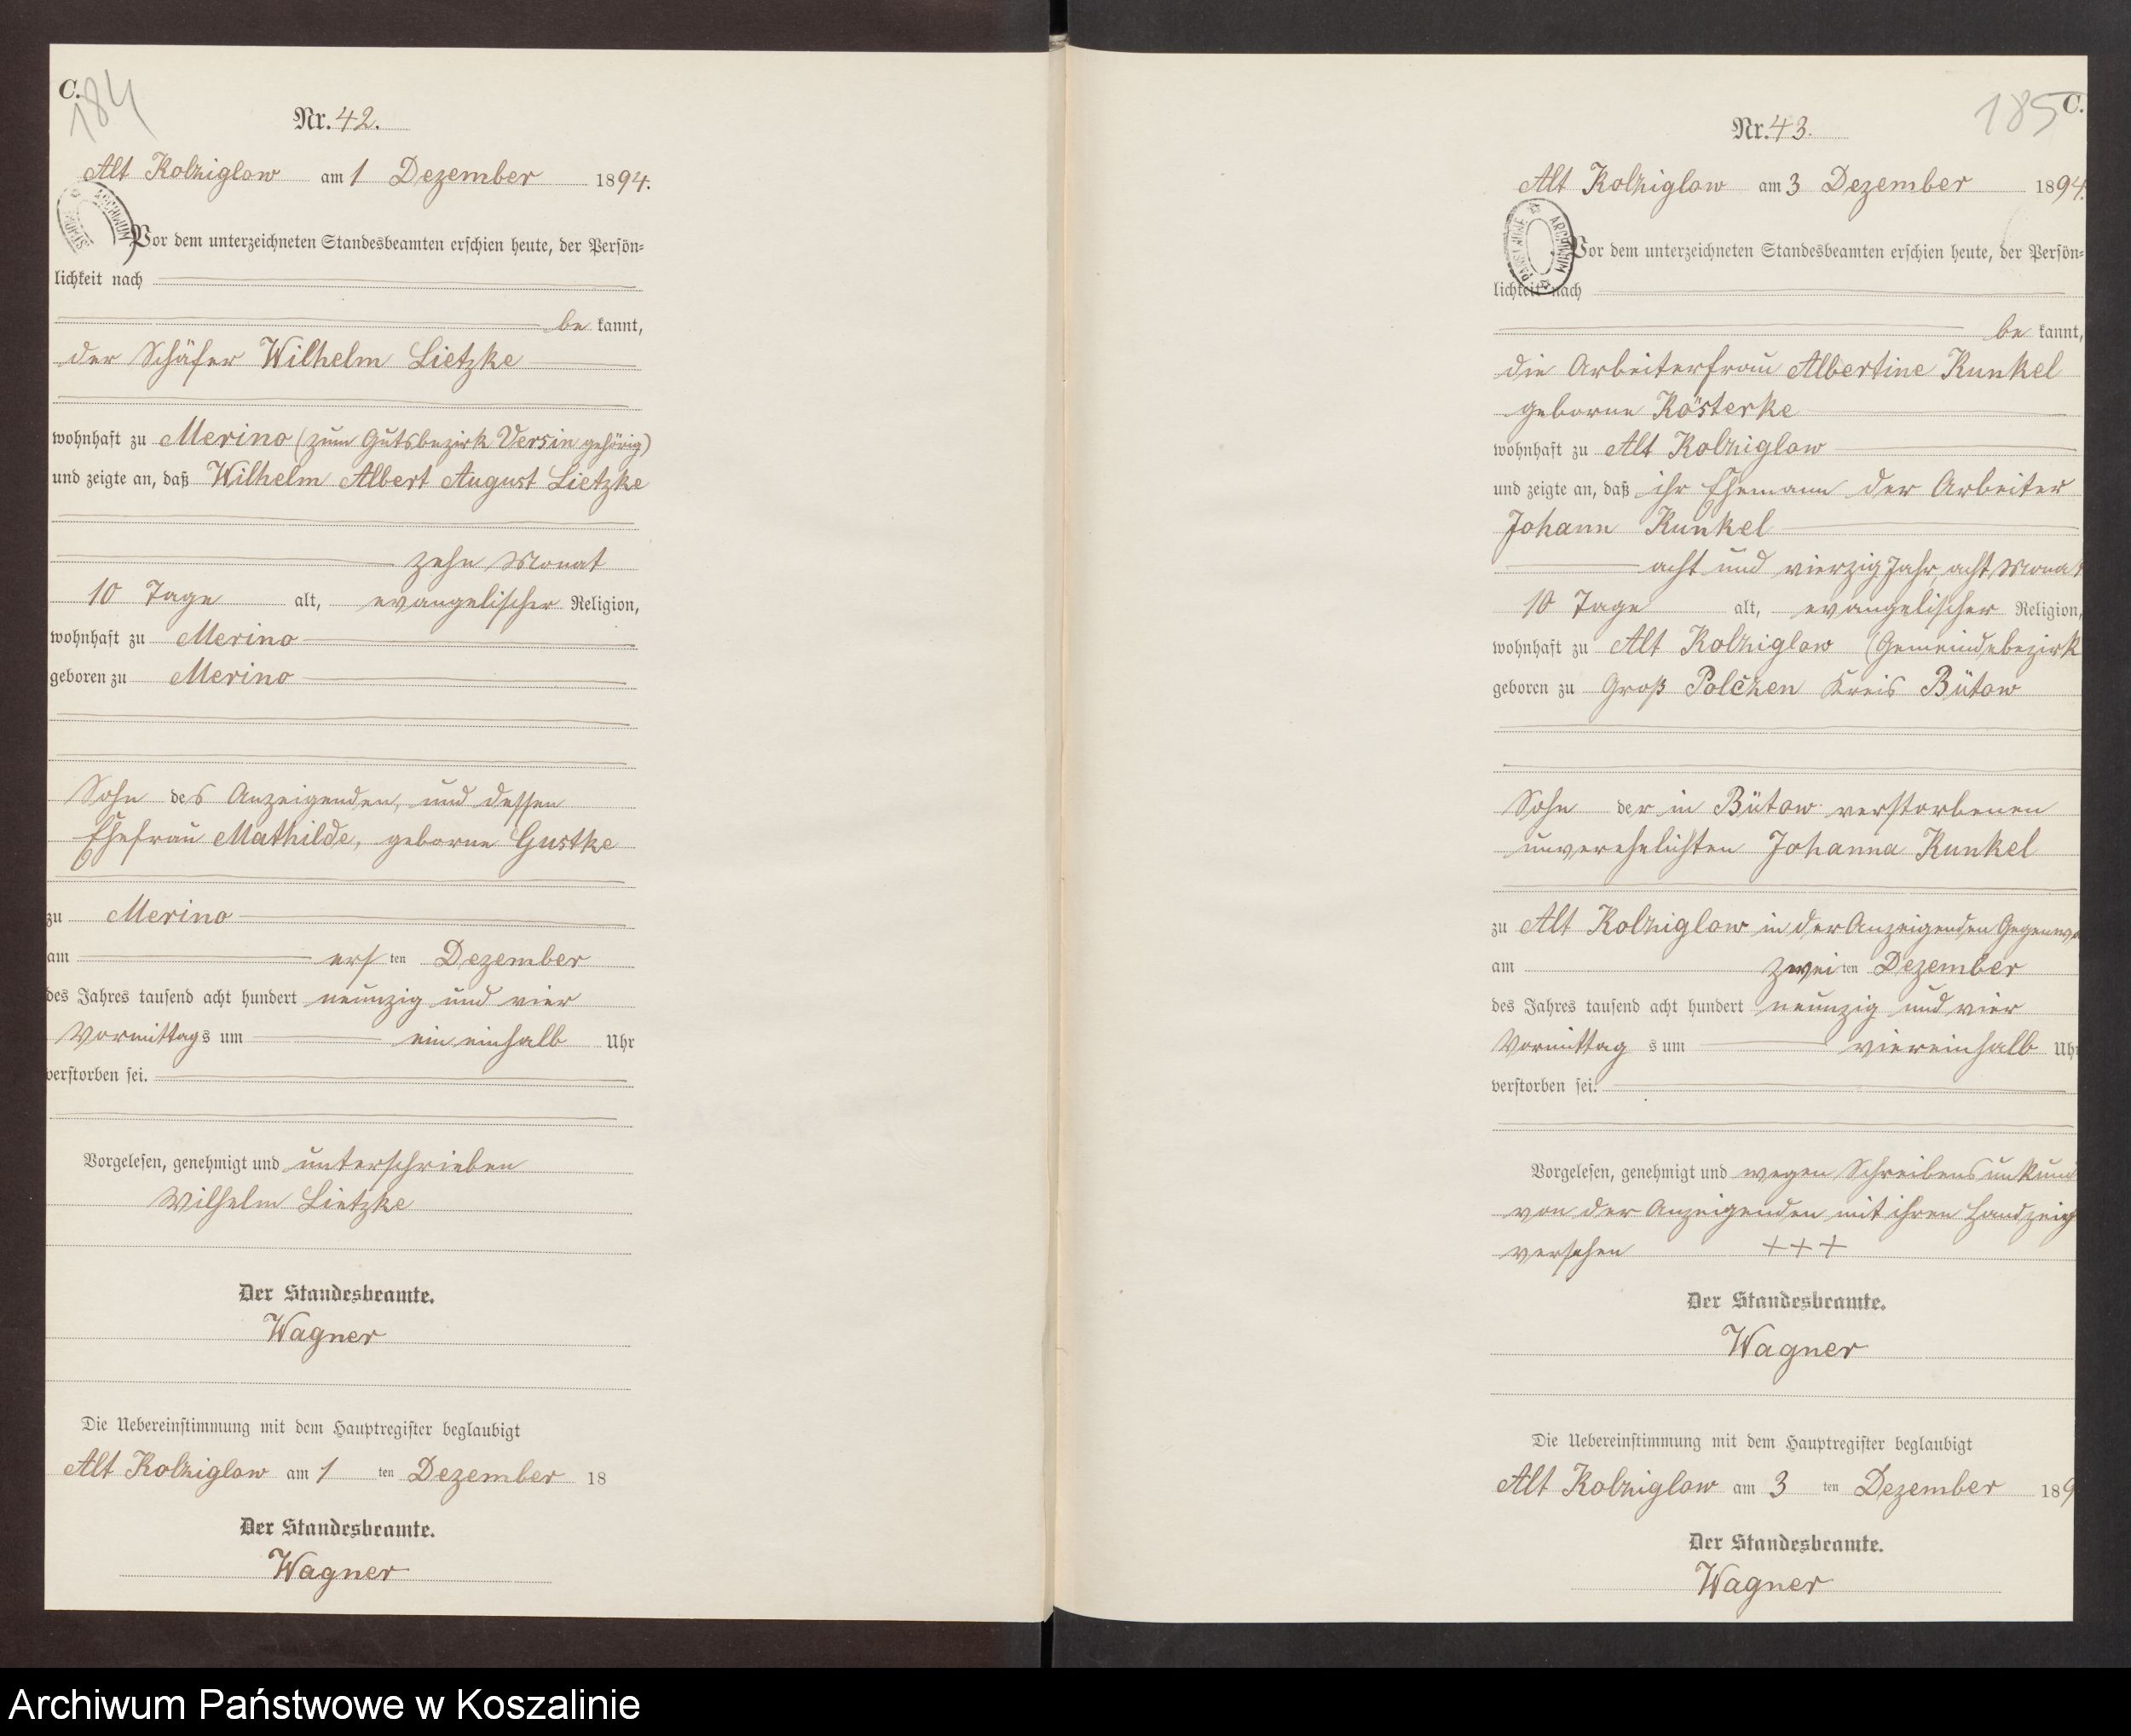 C.
184
Nr. 42.
Alt Kolziglow am 1 Dezember 1894.
Vor dem unterzeichneten Standesbeamten erschien heute, der Persön-
lichkeit nach
be kannt,
der Schäfer Wilhelm Lietzke
wohnhaft zu Merino (zum Gutsbezirk Versin gehörig)
und zeigte an, daß Wilhelm Albert August Lietzke
zehn Monat
10 Tage alt, evangelischer Religion,
wohnhaft zu Merino
geboren zu Merino
Sohn des Anzeigenden, und dessen
Ehefrau Mathilde, geborne Gustke
zu Merino
am ers ten Dezember
des Jahres tausend acht hundert neunzig und vier
Vormittags um ein einhalb Uhr
verstorben sei.
Vorgelesen, genehmigt und unterschrieben
Wilhelm Lietzke
Der Standesbeamte.
Wagner
Die Uebereinstimmung mit dem Hauptregister beglaubigt
Alt Kolziglow am 1 ten Dezember 18
Der Standesbeamte.
Wagner
185
C.
Nr. 43.
Alt Kolziglow am 3 Dezember 1894.
ARCHIWUM PAŃSTWOWE
Vor dem unterzeichneten Standesbeamten erschien heute, der Persön-
lichkeit nach
be kannt,
die Arbeiterfrau Albertine Kunkel
geborne Kösterke
wohnhaft zu Alt Kolziglow
und zeigte an, daß ihr Ehemann der Arbeiter
Johann Kunkel
acht und vierzig Jahr, acht Monat
10 Tage alt, evangelischer Religion,
wohnhaft zu Alt Kolziglow (Gemeindebezirk
geboren zu Groß Polczen Kreis Bütow
Sohn der in Bütow verstorbenen
unverehelichten Johanna Kunkel
zu Alt Kolziglow in der Anzeigenden Gegenwa
am zwei ten Dezember
des Jahres tausend acht hundert neunzig und vier
Vormittag s um viereinhalb Uhr
verstorben sei.
Vorgelesen, genehmigt und wegen Schreibensunkund
von der Anzeigenden mit ihren Handzeich
versehen +++
Der Standesbeamte.
Wagner
Die Uebereinstimmung mit dem Hauptregister beglaubigt
Alt Kolziglow am 3 ten Dezember 189
Der Standesbeamte.
Wagner
Archiwum Państwowe w Koszalinie